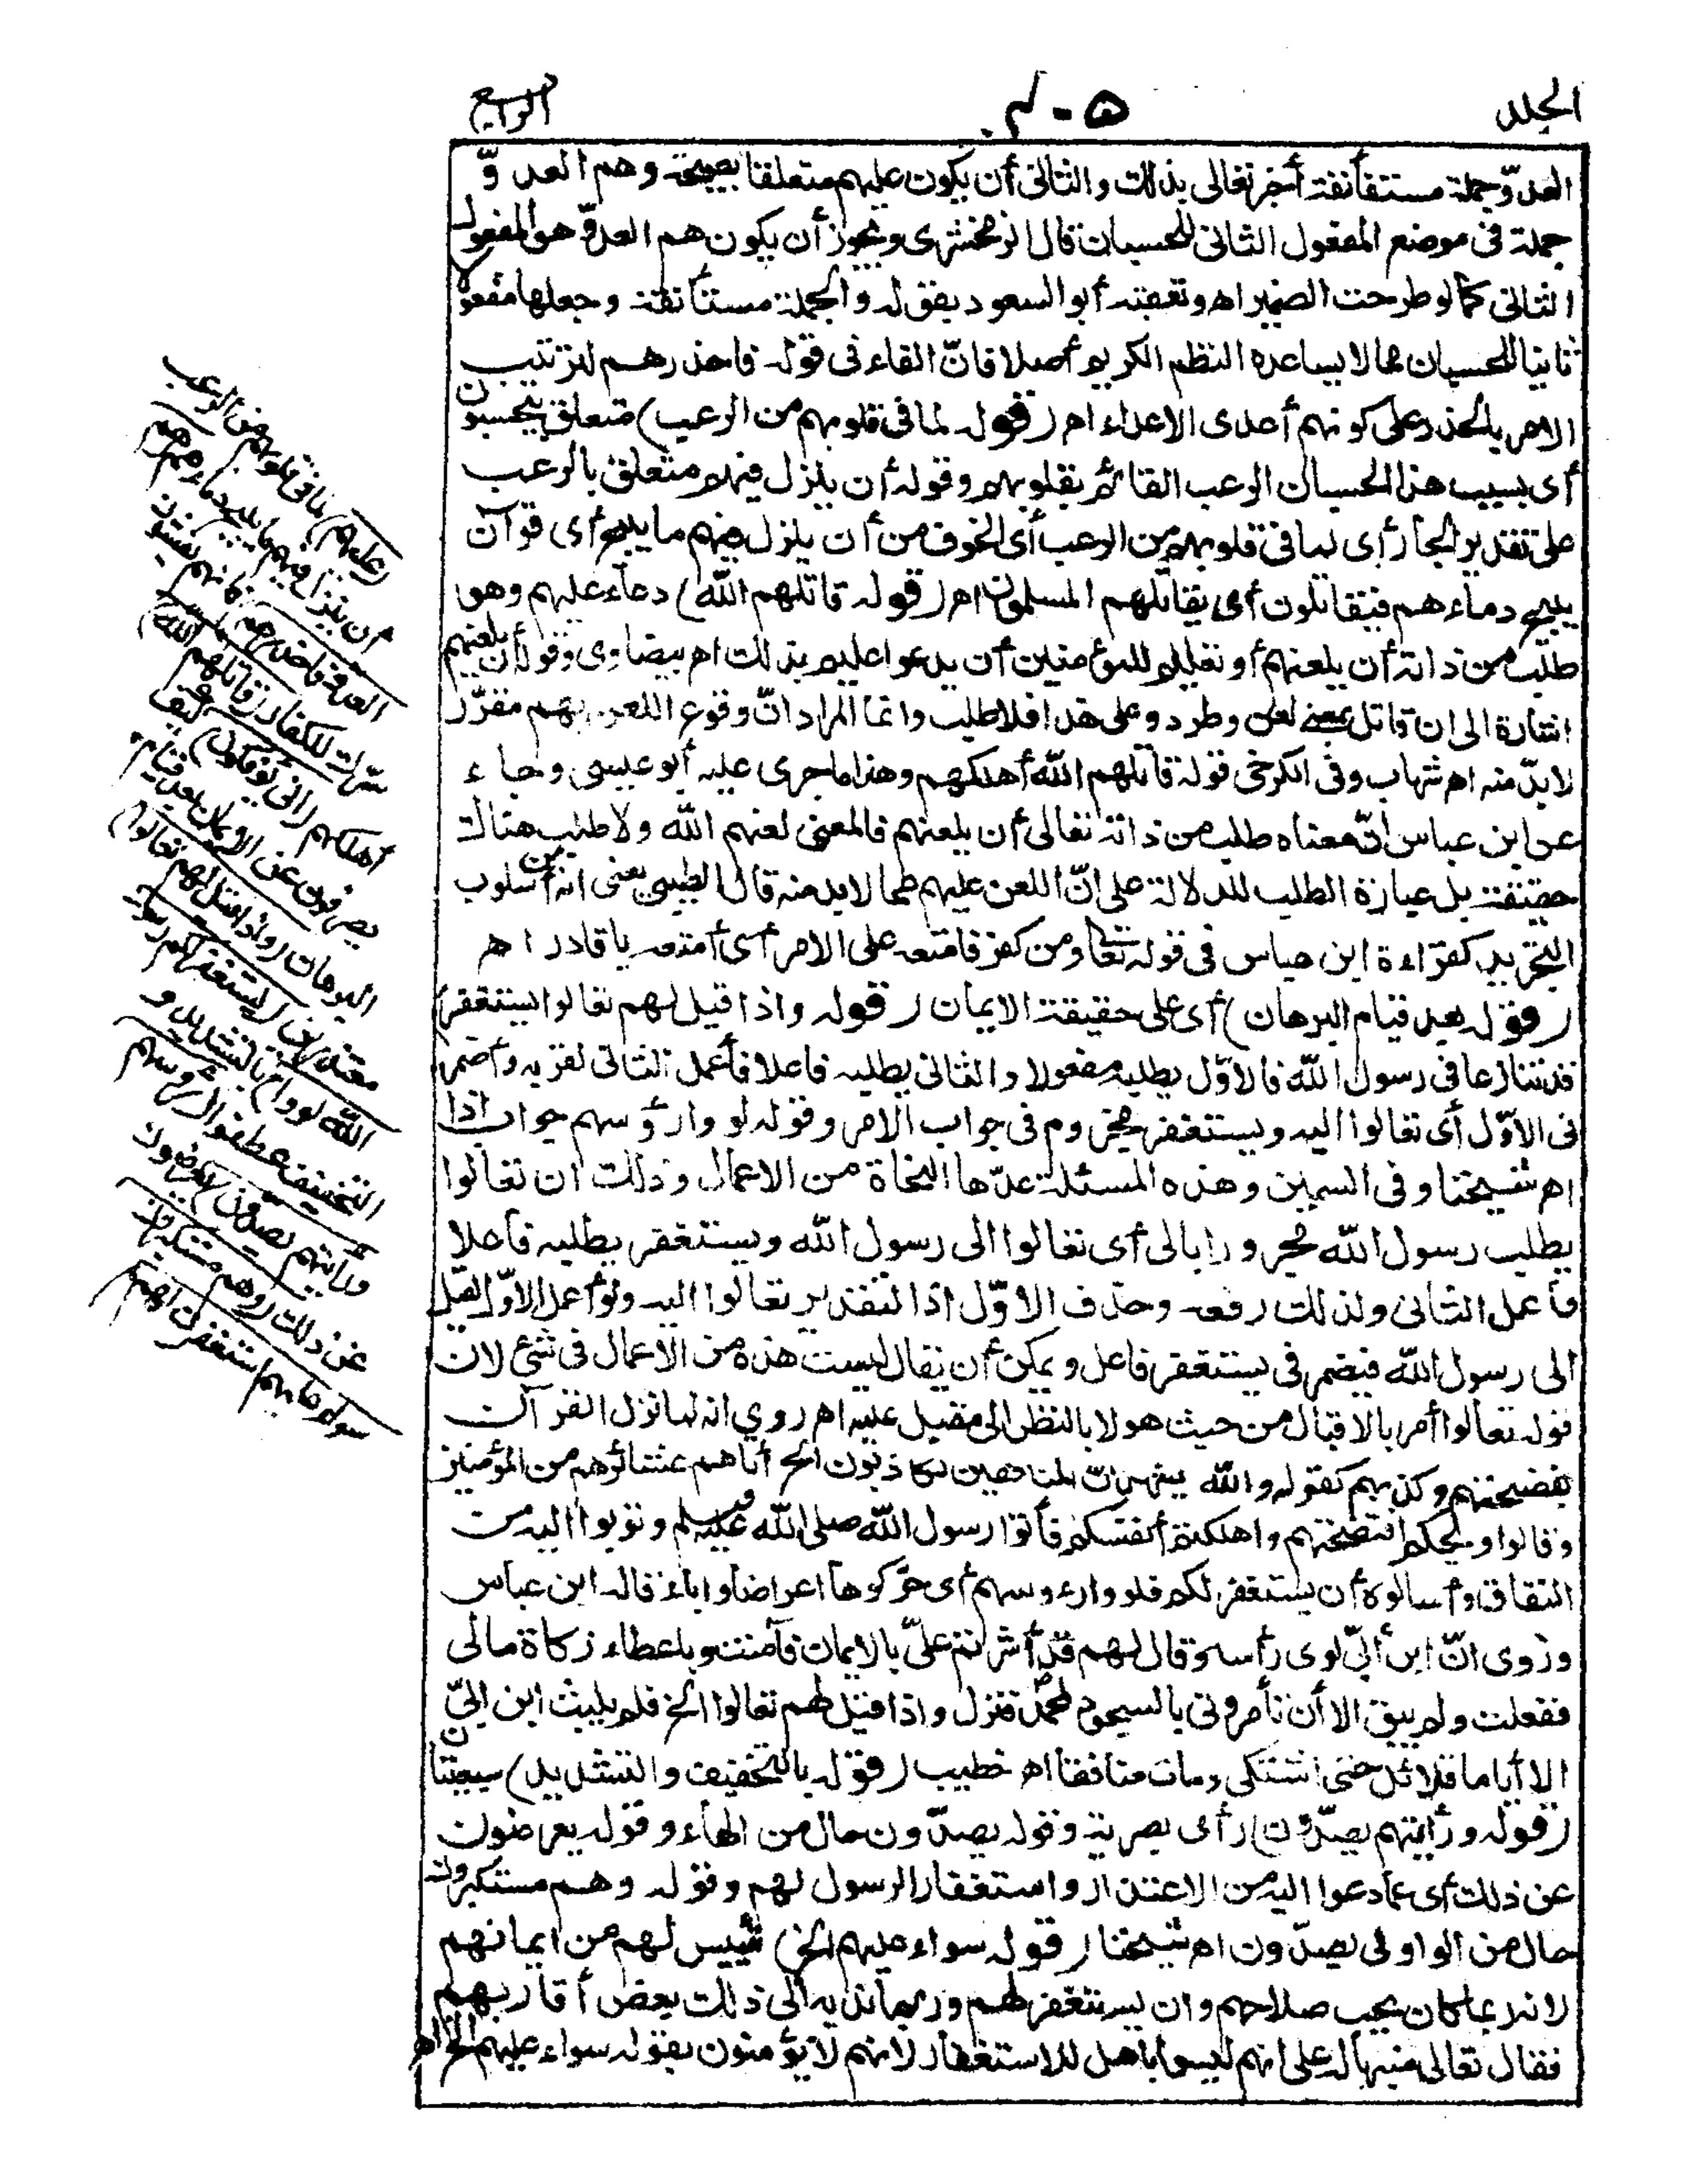 الجلد
الرابع
العدوّ جملة مستأنفة أخبر تعالى بذلك والثاني أن يكون عليهم متعلقا بصيحة وهم العدوّ
جملة في موضع المفعول الثاني للحسبان قال الزمخشري ويجوز أن يكون هم العدوّ هو المفعول
الثاني كما لو طرحت الضمير اه وتعقبه أبو السعود بقوله والجملة مستأنفة وجعلها مفعولا
ثانيا للحسبان مما لا يساعده النظم الكريم أصلا فانّ الفاء في قوله فاحذرهم لترتيب
الامر بالحذر على كونهم أعدى الاعداء اه (قوله لما في قلوبهم من الرعب) متعلق بيحسبون
أي بسبب هذا الحسبان الرعب القائم بقلوبهم وقوله أن ينزل فيهم متعلق بالرعب
على تقدير الجار أي لما في قلوبهم من الرعب أي الخوف من أن ينزل فيهم ما يبيح أي قرآن
يبيح دماءهم فيقاتلون أي يقاتلهم المسلمون اه (قوله قاتلهم الله) دعاء عليهم وهو
طلب من ذاته أن يلعنهم أو تعليم للمؤمنين أن يدعوا عليهم بذلك اه بيضاوي وقوله أن يلعنهم
اشارة الى ان قاتل بمعنى لعن وطرد وعلى هذا فلا طلب وانما المراد انّ وقوع اللعن بهم مقرّر
لا بدّ منه اه شهاب وفي الكرخي قوله قاتلهم الله أهلكهم وهذا ما جرى عليه أبو عيسى وجاء
عن ابن عباس انّ معناه طلب من ذاته تعالى أن يلعنهم فالمعنى لعنهم الله ولا طلب هناك
حقيقة بل عبارة الطلب للدلالة على انّ اللعن عليهم مما لا بد منه قال الطيبي يعني انه من أسلوب
التجريد كقراءة ابن عباس في قوله تعالى ومن كفر فأمتعه على الامر أي أمتعه يا قادر اه
(قوله بعد قيام البرهان) أي على حقيقة الايمان (قوله واذا قيل لهم تعالوا يستغفر)
قد تنازعا في رسول الله فالاوّل يطلبه مفعولا والثاني يطلبه فاعلا فأعمل الثاني لقربه وأضمر
في الاوّل أي تعالوا اليه ويستغفر مجزوم في جواب الامر وقوله لووا رؤسهم جواب اذا
اه شيخنا وفي السمين وهذه المسئلة عدّها النحاة من الاعمال وذلك ان تعالوا
يطلب رسول الله مجرورا بالى أي تعالوا الى رسول الله ويستغفر يطلبه فاعلا
فأعمل الثاني ولذلك رفعه وحذف الاوّل اذ التقدير تعالوا اليه ولو أعمل الاوّل لقيل
الى رسول الله فيضمر في يستغفر فاعل ويمكن أن يقال ليست هذه من الاعمال في شئ لان
قوله تعالوا أمر بالاقبال من حيث هو لا بالنظر الى مقبل عليه اه روي انه لما نزل القرآن
بفضيحتهم وكذبهم كقوله والله يشهد انّ المنافقين لكاذبون الخ أتاهم عشائرهم من المؤمنين
وقالوا ويحكم افتضحتم واهلكتم أنفسكم فأتوا رسول الله صلى الله عليه وسلم وتوبوا اليه من
النفاق وأسألوه أن يستغفر لكم فلووا رءوسهم أي حرّكوها اعراضا واباء قاله ابن عباس
وروى انّ ابن أبيّ لوى رأسه وقال لهم قد أشرتم عليّ بالايمان فآمنت وباعطاء زكاة مالي
ففعلت ولم يبق الا أن تأمروني بالسجود لمحمد فنزل واذا قيل لهم تعالوا الخ فلم يلبث ابن أبيّ
الا أياما قلائل حتى اشتكى ومات منافقا اه خطيب (قوله بالتخفيف والتشديد) سبعيتان
(قوله ورأيتهم يصدّون) رأى بصرية وقوله يصدّون حال من الهاء وقوله يعرضون
عن ذلك أي عما دعوا اليه من الاعتذار واستغفار الرسول لهم وقوله وهم مستكبرون
حال من الواو في يصدّون اه شيخنا (قوله سواء عليهم الخ) تيئيس لهم من ايمانهم
لانه ربما كان يحب صلاحهم وان يستغفر لهم وربما ندبه الى ذلك بعض أقاربهم
فقال تعالى منبها له على انهم ليسوا باهل للاستغفار لانهم لا يؤمنون بقوله سواء عليهم الخ اه
(عليهم) لما في قلوبهم من الرعب
أن ينزل فيهم ما يبيح دماءهم (هم
العدوّ فاحذرهم) فانهم يفشون
سرّك للكفار (قاتلهم الله)
أهلكهم (أنى يؤفكون) كيف
يصرفون عن الايمان بعد قيام
البرهان (واذا قيل لهم تعالوا)
معتذرين (يستغفر لكم رسول
الله لووا) بالتشديد و
التخفيف عطفوا (رؤسهم
ورأيتهم يصدّون) يعرضون
عن ذلك (وهم مستكبرون
سواء عليهم) استغفرت لهم